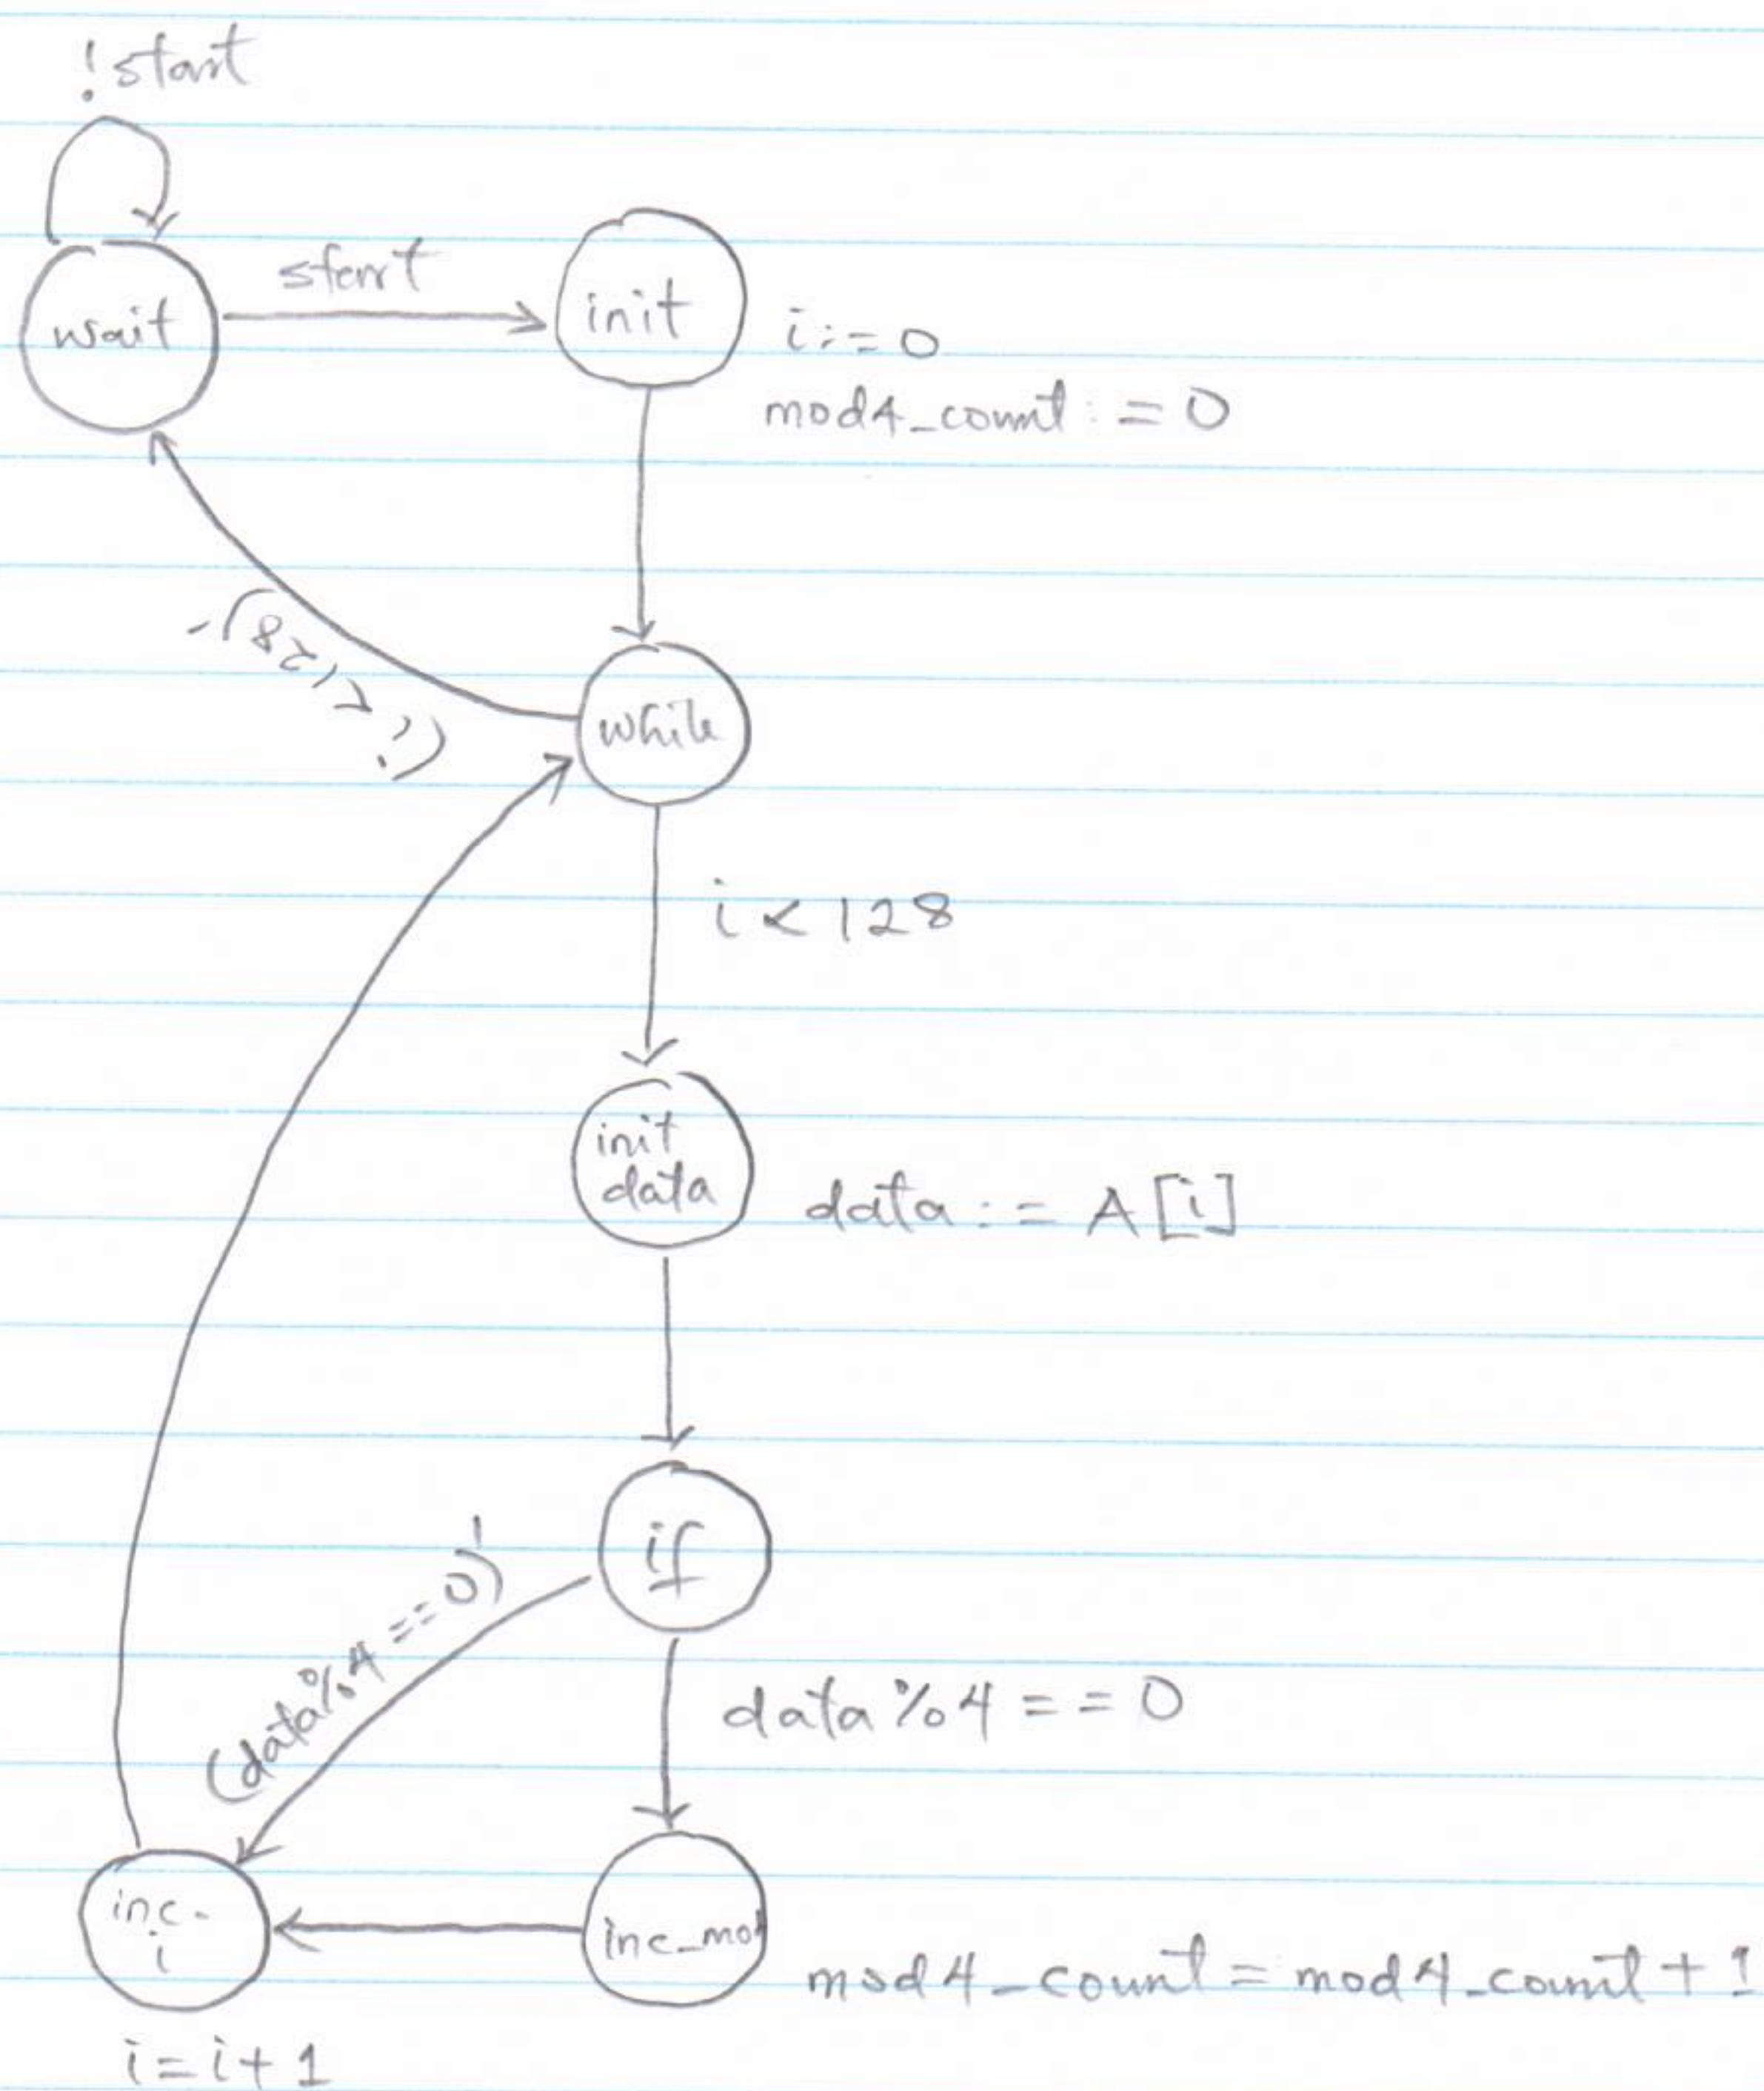 !start
start
wait
init
i:=0
mod4_count:=0
(i<128)'
while
i<128
init
data
data:=A[i]
if
(data%4==0)'
data%4==0
inc-
i
inc_mod
mod4_count=mod4_count+1
i=i+1